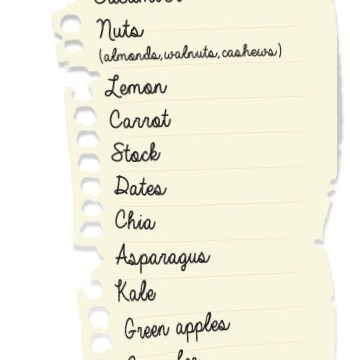 Nuts
(almonds, walnuts, cashews)
Lemon
Carrot
Stock
Dates
Chia
Asparagus
Kale
Green apples